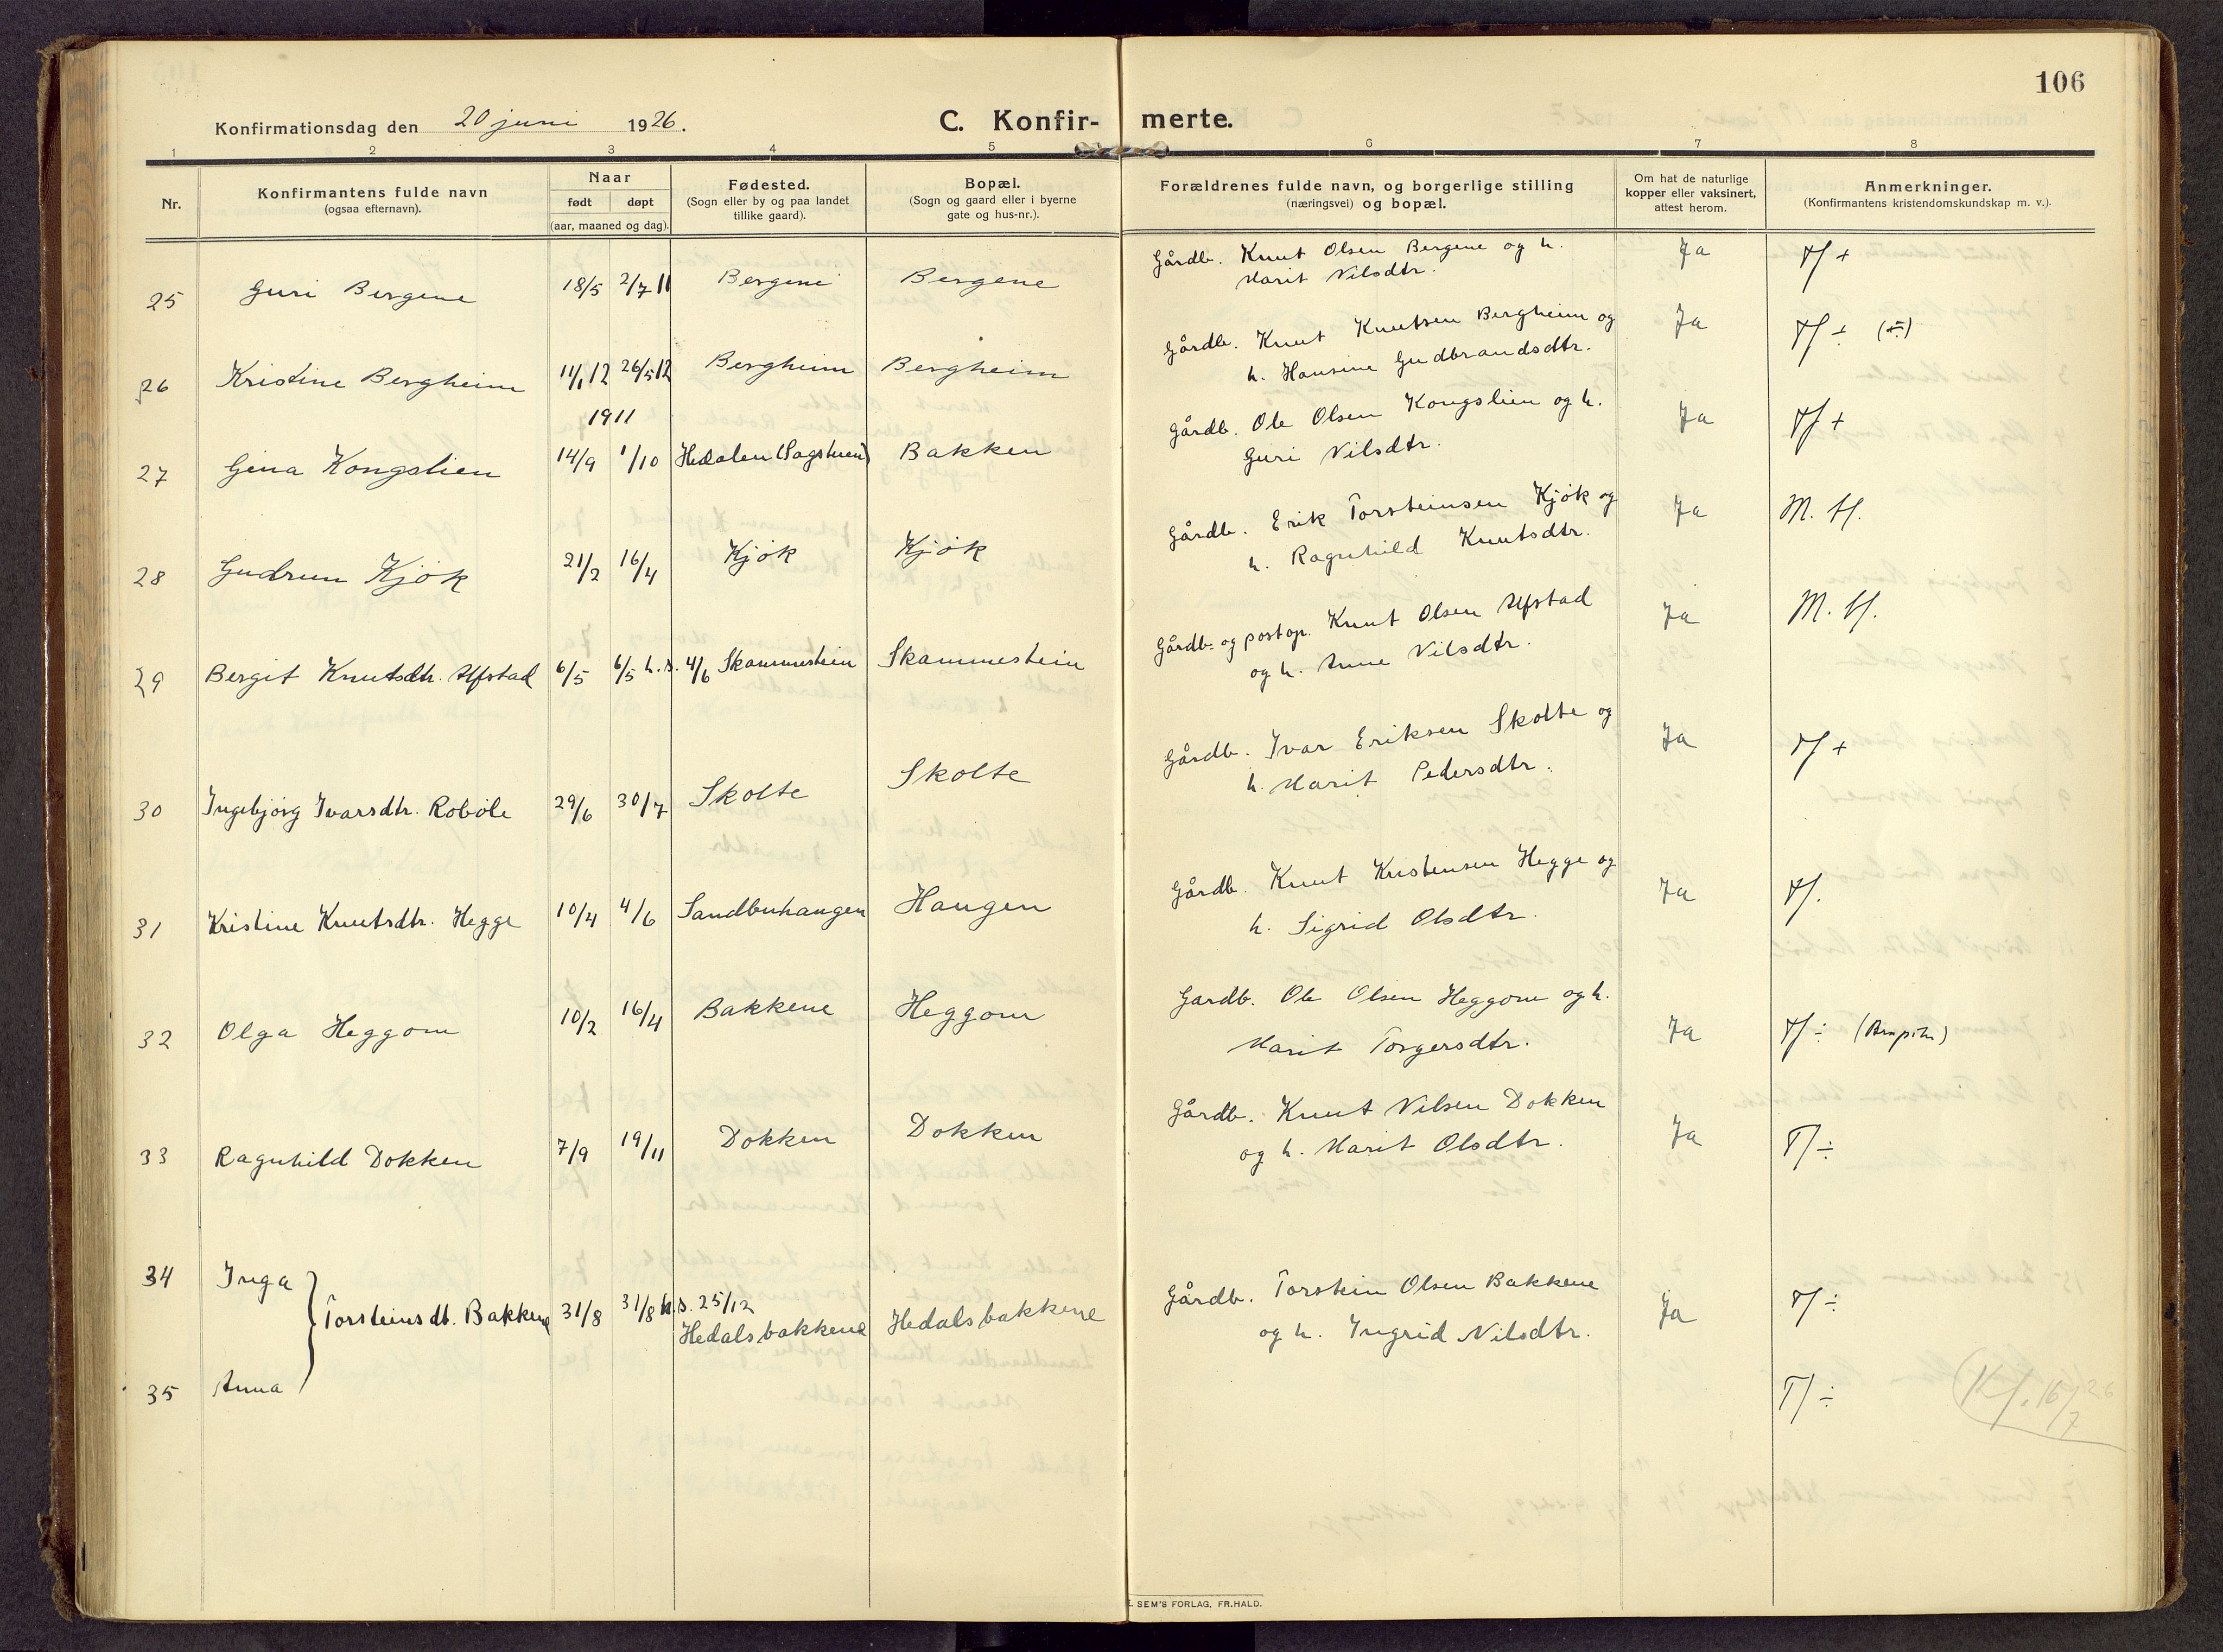 106
Konfirmationsdag den 20 juni 1926.
C. Konfirmerte.
1 2 3 4 5 6 7 8
Nr.
Konfirmantens fulde navn
(ogsaa efternavn).
Naar
født døpt
(aar, maaned og dag).
Fødested.
(Sogn eller by og paa landet
tillike gaard).
Bopæl.
(Sogn og gaard eller i byerne
gate og hus-nr.).
Forældrenes fulde navn, og borgerlige stilling
(næringsvei) og bopæl.
Om hat de naturlige
kopper eller vaksinert,
attest herom.
Anmerkninger.
(Konfirmantens kristendomskundskap m. v.).
25 Guri Bergene 18/5 2/7 11 Bergene Bergene Gårdb. Knut Olsen Bergene og h. Ja +
Marit Nilsdtr.
26 Kristine Bergheim 11/1 12 26/5 12 Bergheim Bergheim Gårdb. Knut Knutsen Bergheim og Ja ÷ (÷)
h. Hansine Gudbrandsdtr.
1911
27 Gina Kongslien 14/9 1/10 Hedalen (Sagstuen) Bakken Gårdb. Ole Olsen Kongslien og h. Ja +
Guri Nilsdtr.
28 Gudrun Kjøk 21/2 16/4 Kjøk Kjøk Gårdb. Erik Torsteinsen Kjøk og Ja M.
h. Ragnhild Knutsdtr.
29 Bergit Knutsdtr. Ufstad 6/5 6/5 h.s. 4/6 Skammestein Skammestein Gårdb. og postop. Knut Olsen Ufstad Ja M.
og h. Anne Nilsdtr.
30 Ingebjørg Ivarsdtr. Robøle 29/6 30/7 Skolte Skolte Gårdb. Ivar Eriksen Skolte og Ja +
h. Marit Pedersdtr.
31 Kristine Knutsdtr. Hegge 10/4 4/6 Sandbuhaugen Haugen Gårdb. Knut Kristensen Hegge og Ja
h. Sigrid Olsdtr.
32 Olga Heggom 10/2 16/4 Bakkene Heggom Gardb. Ole Olsen Heggom og h. Ja ÷
Marit Torgersdtr.
33 Ragnhild Dokken 7/9 19/11 Dokken Dokken Gårdb. Knut Nilsen Dokken Ja T/÷
og h. Marit Olsdtr.
34 Inga
Torsteinsdt. Bakkene 31/8 31/8 h.s. 25/12 Hedalsbakkene Hedalsbakkene Gårdb. Torstein Olsen Bakkene Ja ÷
og h. Ingrid Nilsdtr.
35 Anna T/÷
K/. 16/7 26
SEM'S FORLAG, FR. HALD.